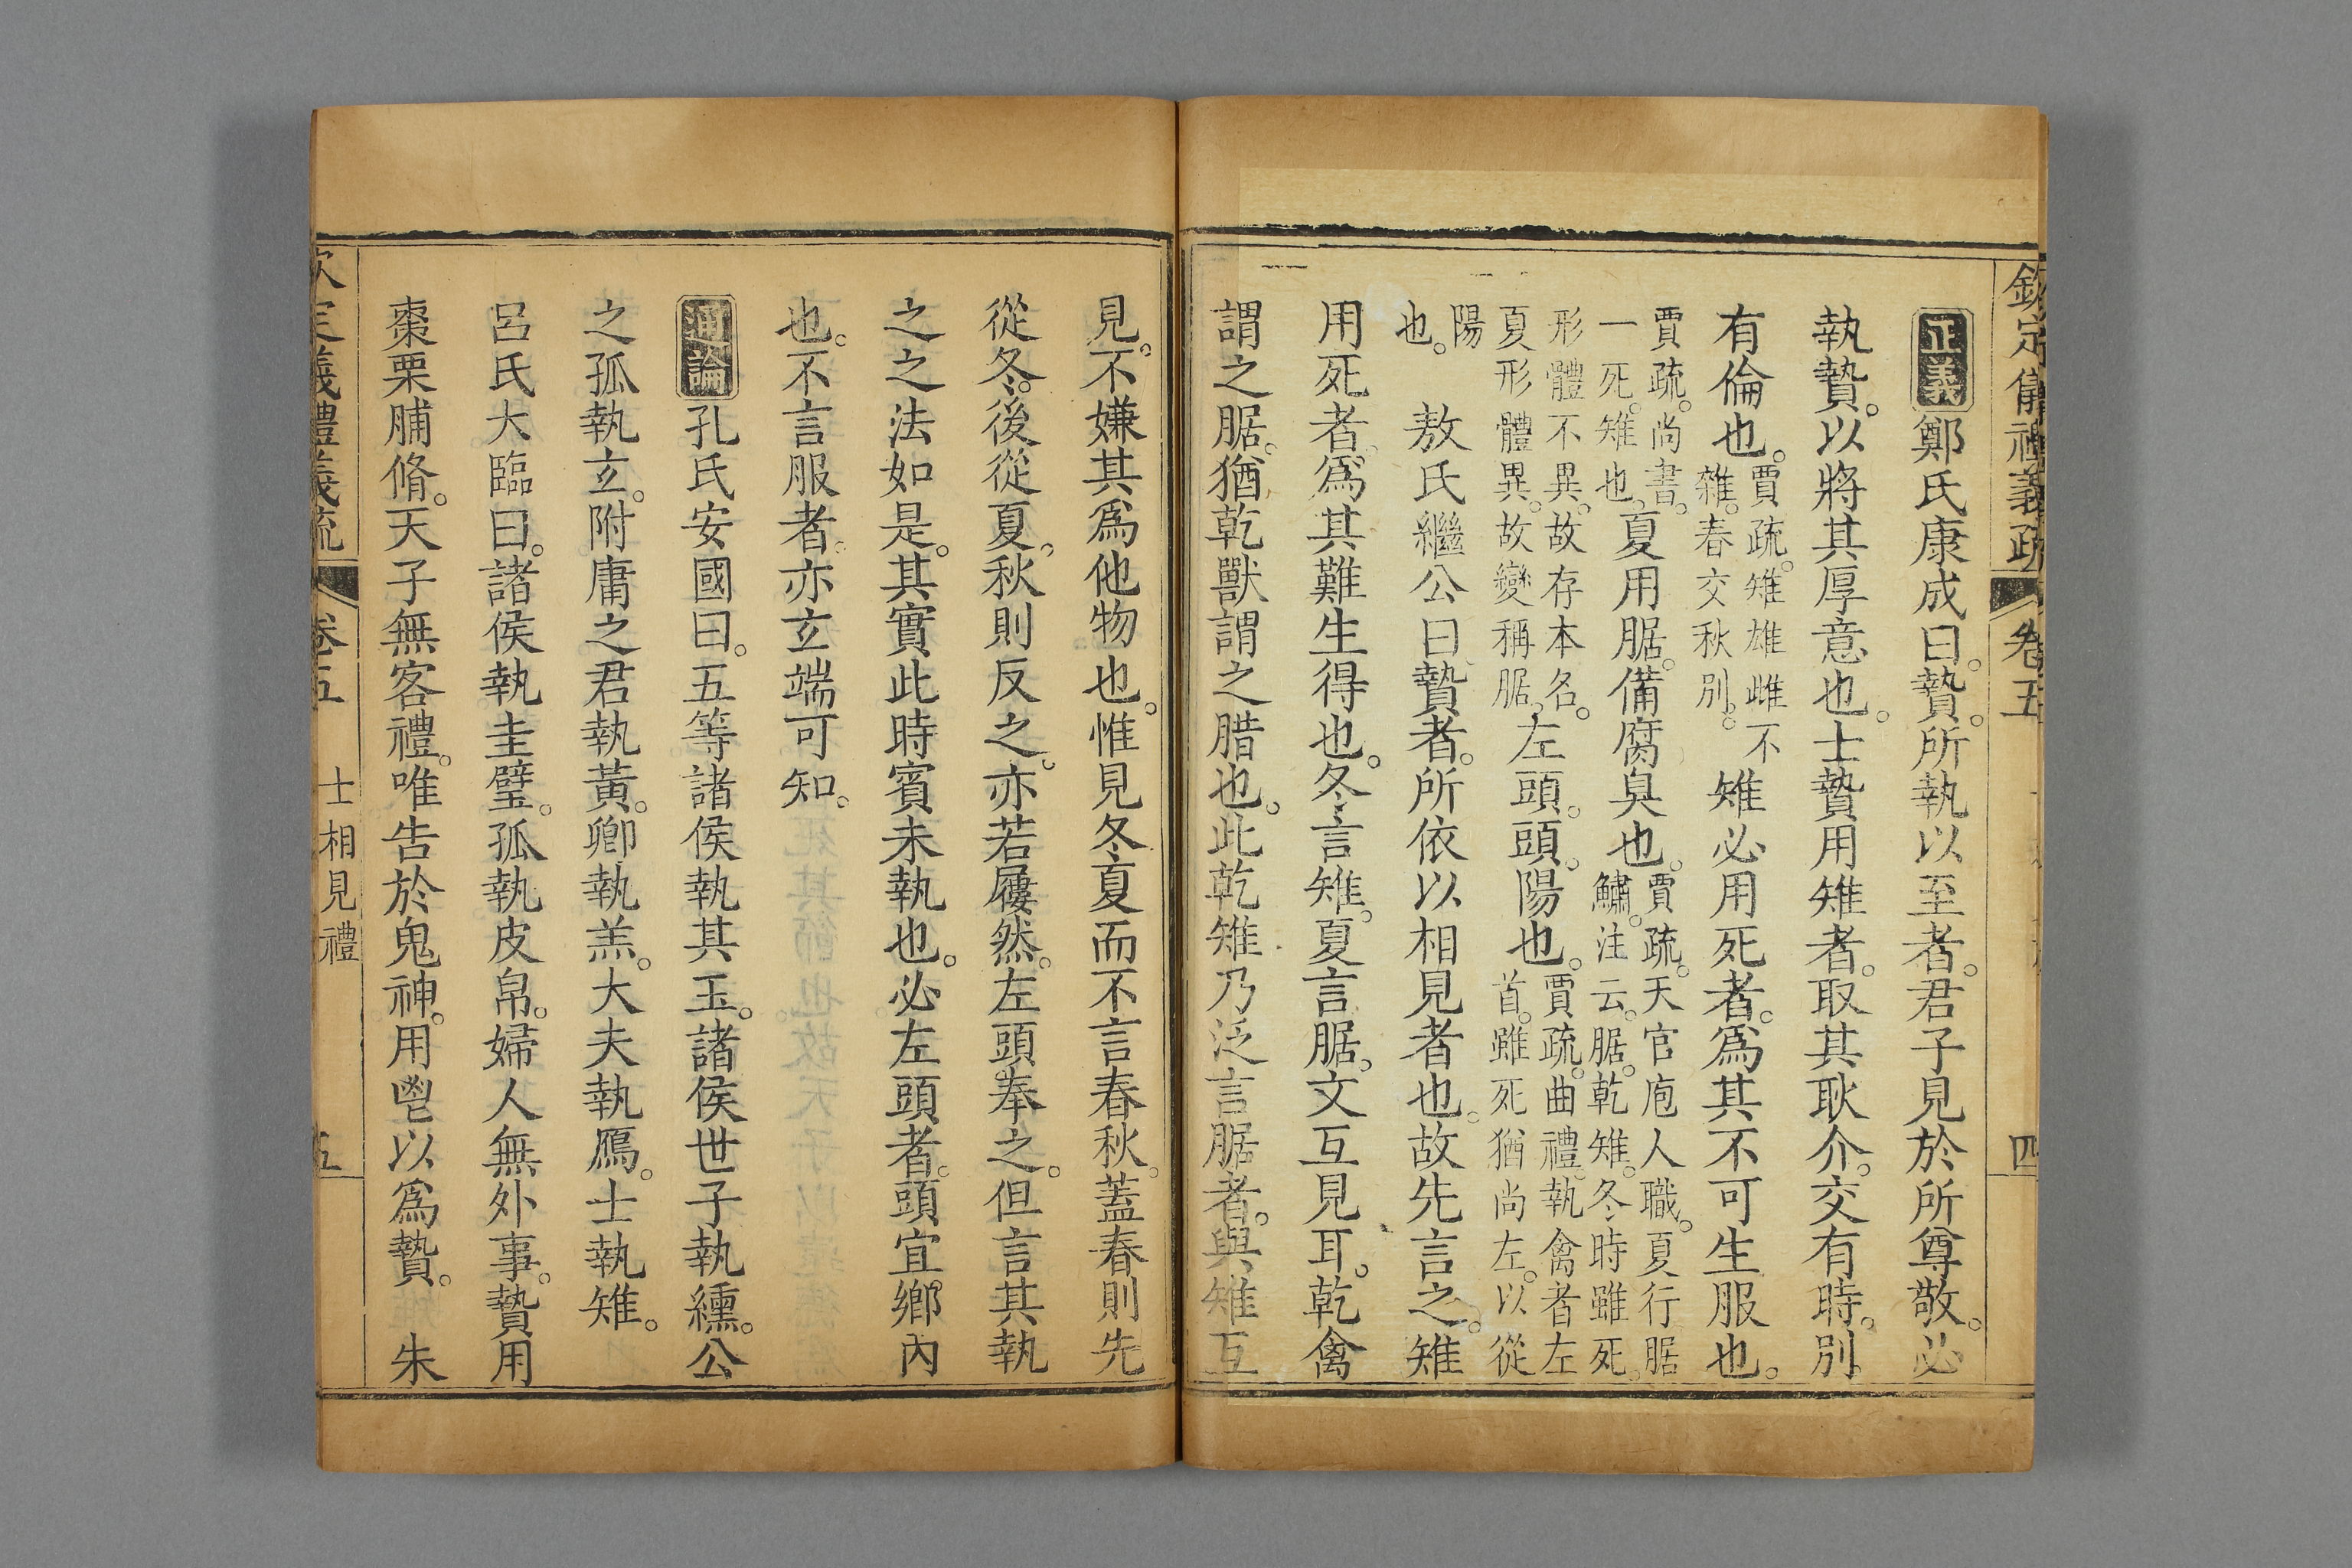 欽定儀禮義疏 卷五 四
正義 鄭氏康成曰。贄。所執以至者。君子見於所尊敬。必
執贄。以將其厚意也。士贄用雉者。取其耿介。交有時。別
有倫也。賈疏。雉雄雌不雜。春交秋別。雉必用死者。爲其不可生服也。
賈疏。尚書。一死。雉也。夏用腒。備腐臭也。賈疏。天官庖人職。夏行腒鱐。注云。腒。乾雉。冬時雖死。
形體不異。故存本名。夏形體異。故變稱腒。左頭。頭。陽也。賈疏。曲禮。執禽者左首。雖死猶尚左。以從
陽也。 敖氏繼公曰。贄者。所依以相見者也。故先言之。雉
用死者。爲其難生得也。冬言雉。夏言腒。文互見耳。乾禽
謂之腒。猶乾獸謂之腊也。此乾雉乃泛言腒者。與雉互
見。不嫌其爲他物也。惟見冬夏而不言春秋。蓋春則先
從冬。後從夏。秋則反之。亦若屨然。左頭。奉之。但言其執
之之法如是。其實此時賓未執也。必左頭者。頭宜鄉內
也。不言服者。亦玄端可知。
通論 孔氏安國曰。五等諸侯執其玉。諸侯世子執纁。公
之孤執玄。附庸之君執黃。卿執羔。大夫執鴈。士執雉。
呂氏大臨曰。諸侯執圭璧。孤執皮帛。婦人無外事。贄用
棗栗脯脩。天子無客禮。唯告於鬼神。用鬯以爲贄。 朱
欽定儀禮義疏 卷五 士相見禮 五